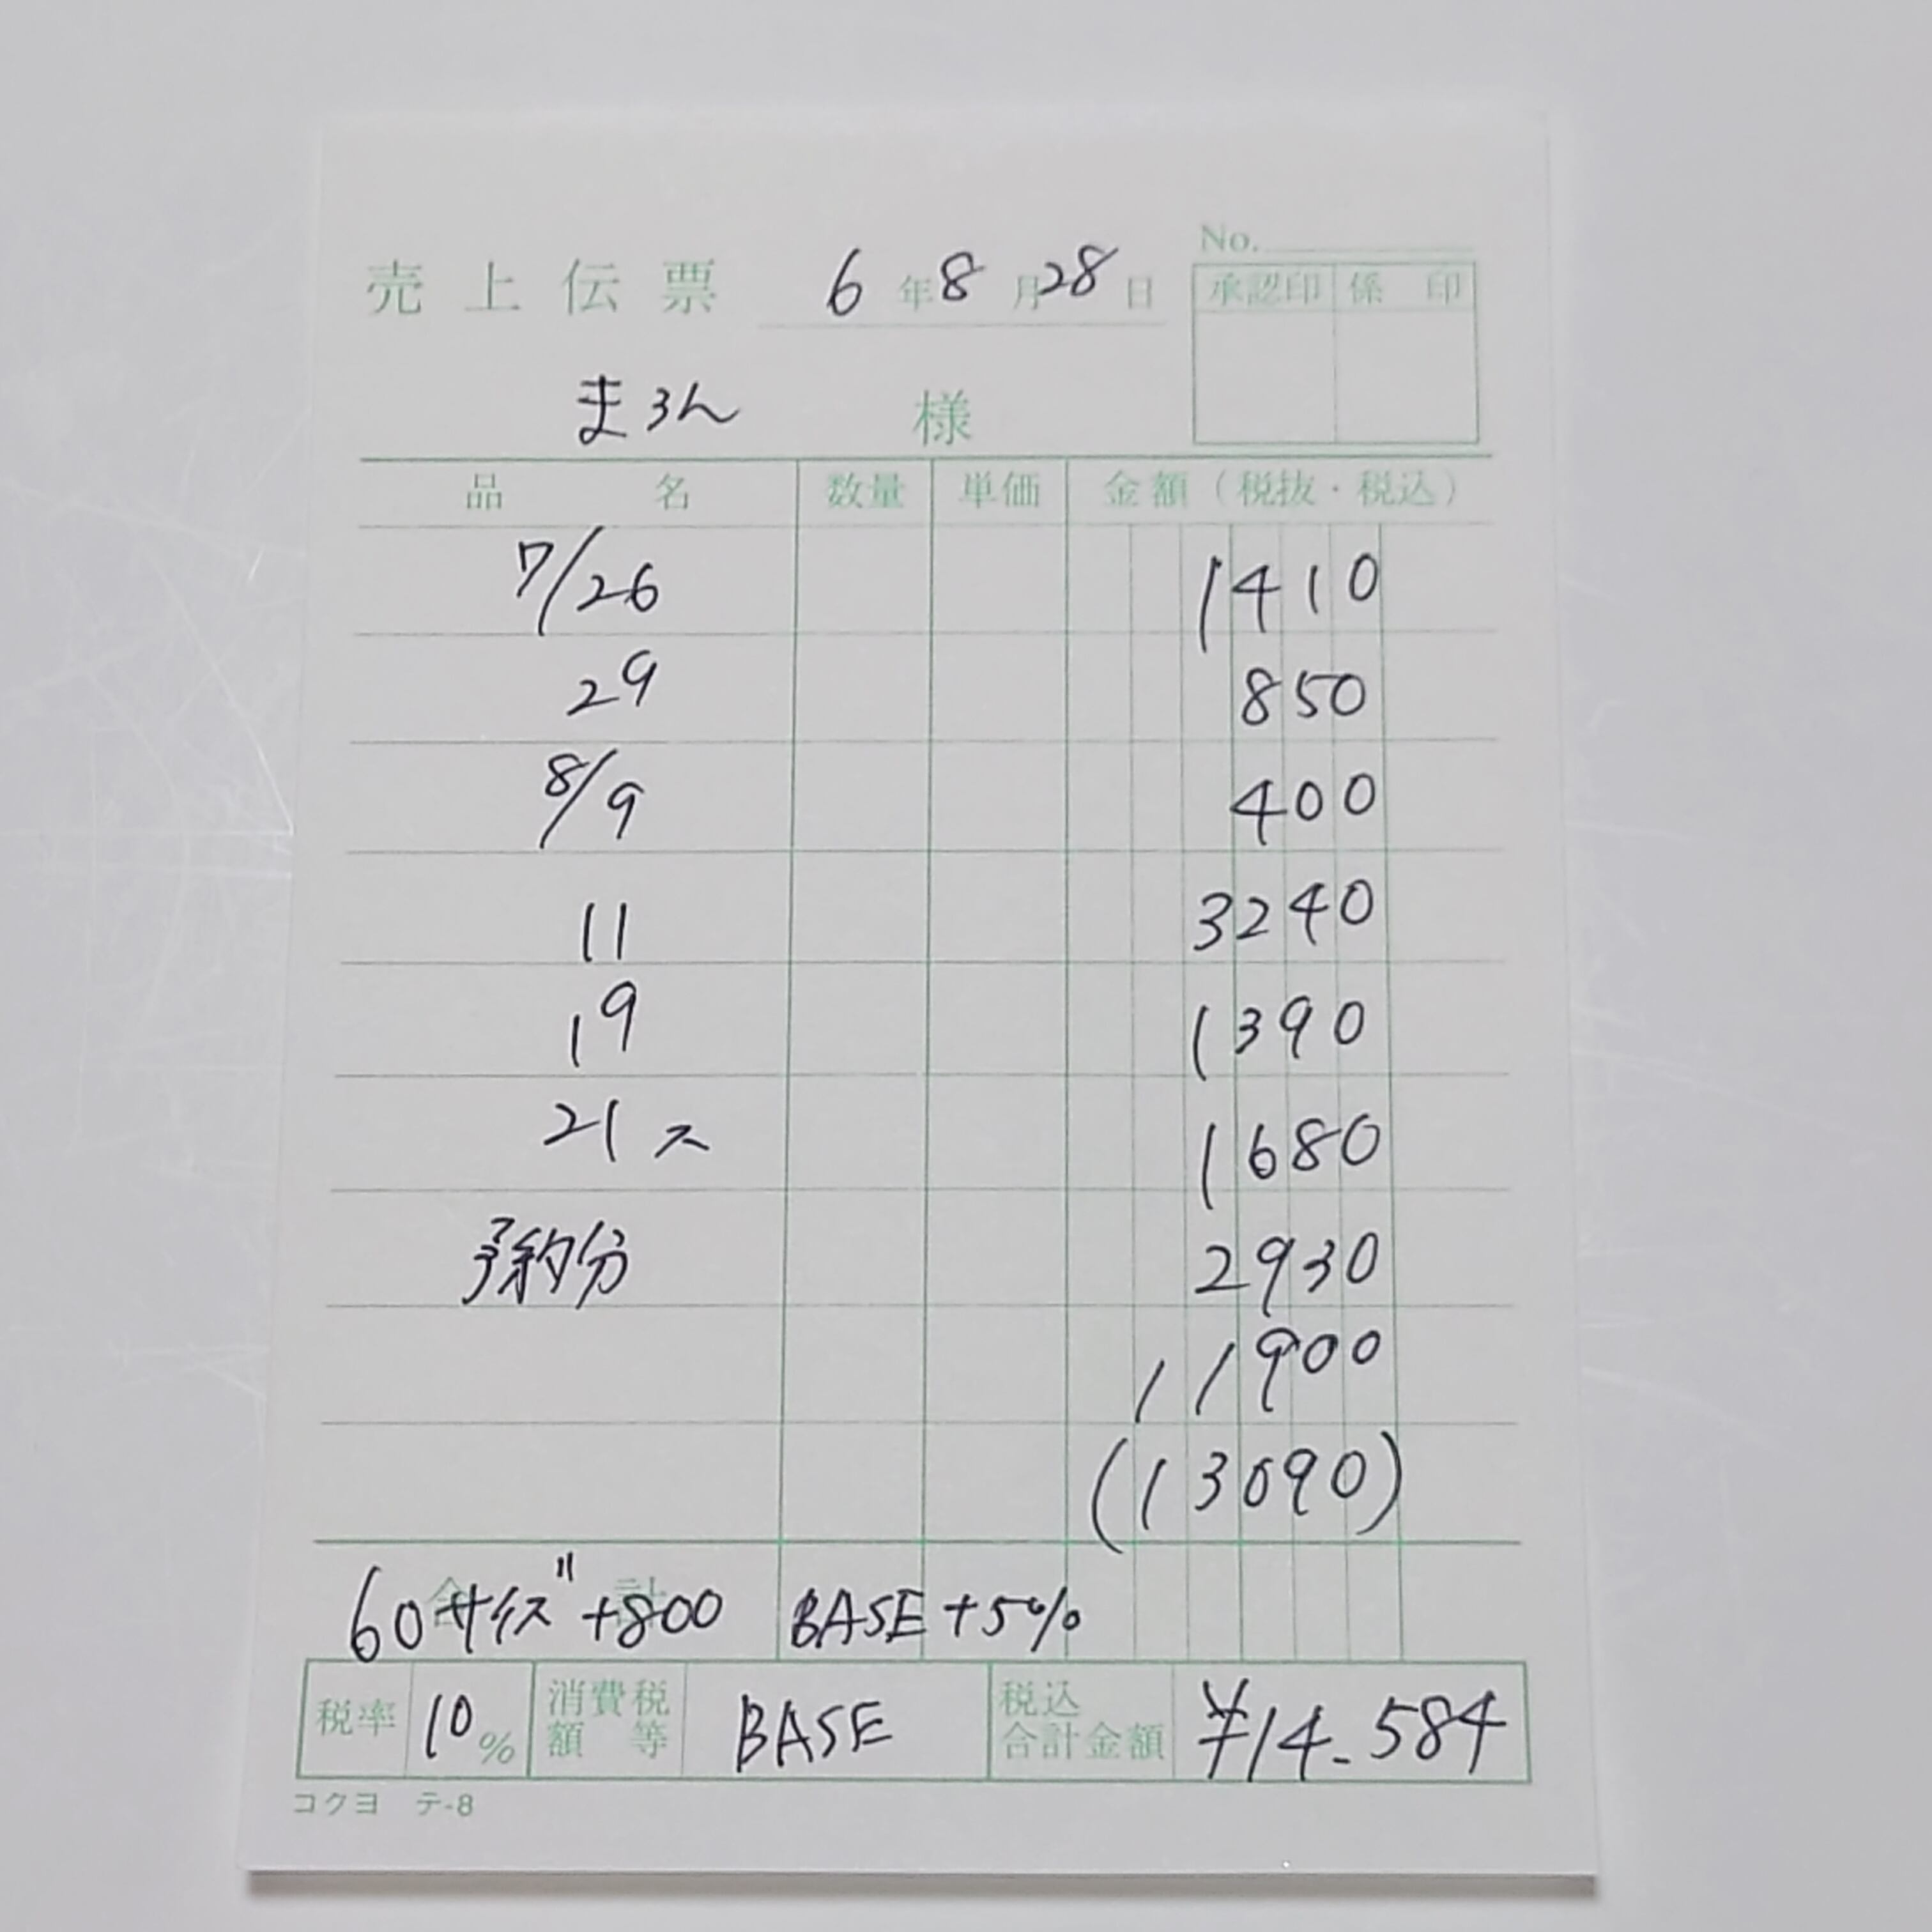 No.
売上伝票 6年8月28日
承認印 係印
まろん 様
品名 数量 単価 金額（税抜・税込）
7/26 1410
29 850
8/9 400
11 3240
19 1390
21 ス 1680
予約分 2930
11900
(13090)
合計
60サイズ+800 BASE+5%
税率 10% 消費税額等 BASE 税込合計金額 ¥14.584
コクヨ テ-8